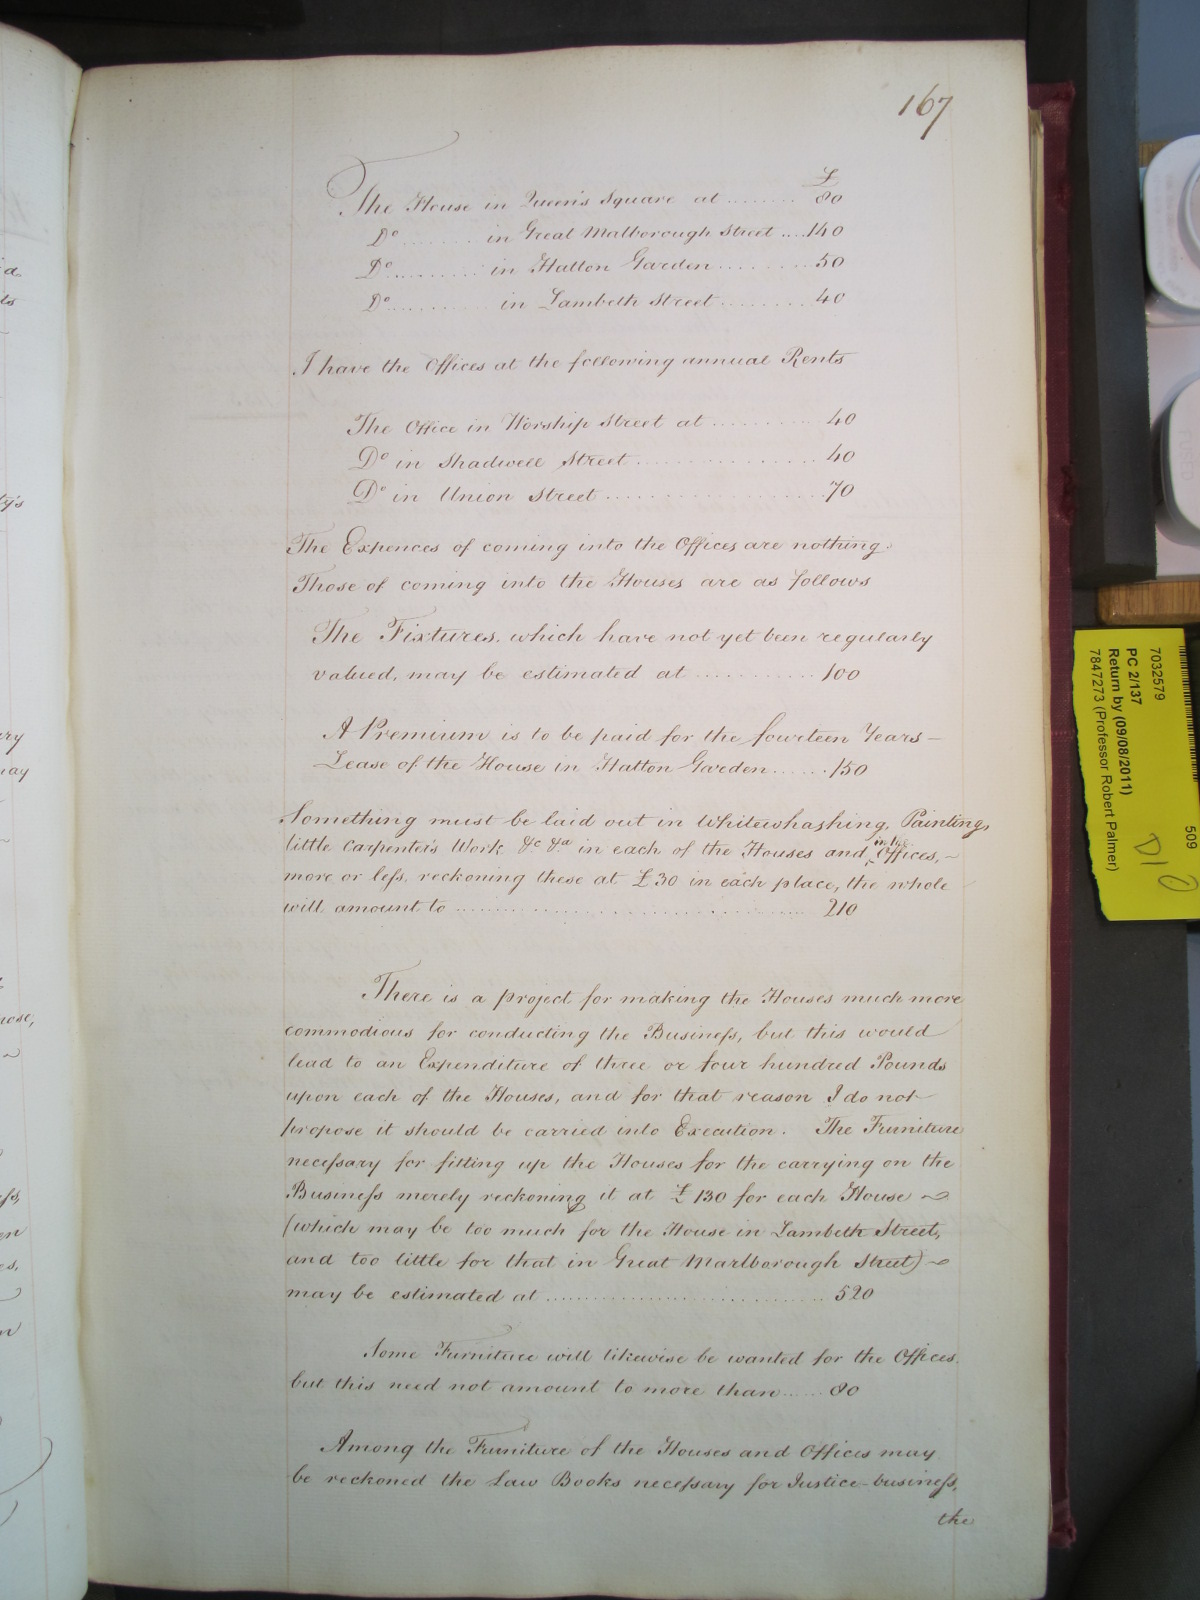 167
£
The House in Queen's Square at ........ 80
Do ........ in Great Malborough Street .... 140
Do ......... in Hatton Garden ......... 50
Do .......... in Lambeth Street ......... 40
I have the Offices at the following annual Rents
The Office in Worship Street at .......... 40
Do in Shadwell Street .............. 40
Do in Union Street ................ 70
The Expences of coming into the Offices are nothing.
Those of coming into the Houses are as follows
The Fixtures, which have not yet been regularly
valued, may be estimated at .......... 100
A Premium is to be paid for the fourteen Years-
Lease of the House in Hatton Garden ...... 150
Something must be laid out in Whitewhashing, Painting,
little Carpenter's Work &c &ca in each of the Houses and in the Offices,
more or less, reckoning these at £30 in each place, the whole
will amount to .............................. 210
There is a project for making the Houses much more
commodious for conducting the Business, but this would
lead to an Expenditure of three or four hundred Pounds
upon each of the Houses, and for that reason I do not
propose it should be carried into Execution. The Furniture
necessary for fitting up the Houses for the carrying on the
Business merely reckoning it at £130 for each House
(which may be too much for the House in Lambeth Street,
and too little for that in Great Marlborough Street)
may be estimated at ......................... 520
Some Furniture will likewise be wanted for the Offices.
but this need not amount to more than ...... 80
Among the Furniture of the Houses and Offices may
be reckoned the Law Books necessary for Justice-business,
the
7032579
509
PC 2/137
Return by (09/08/2011)
7847273 (Professor Robert Palmer)
D10